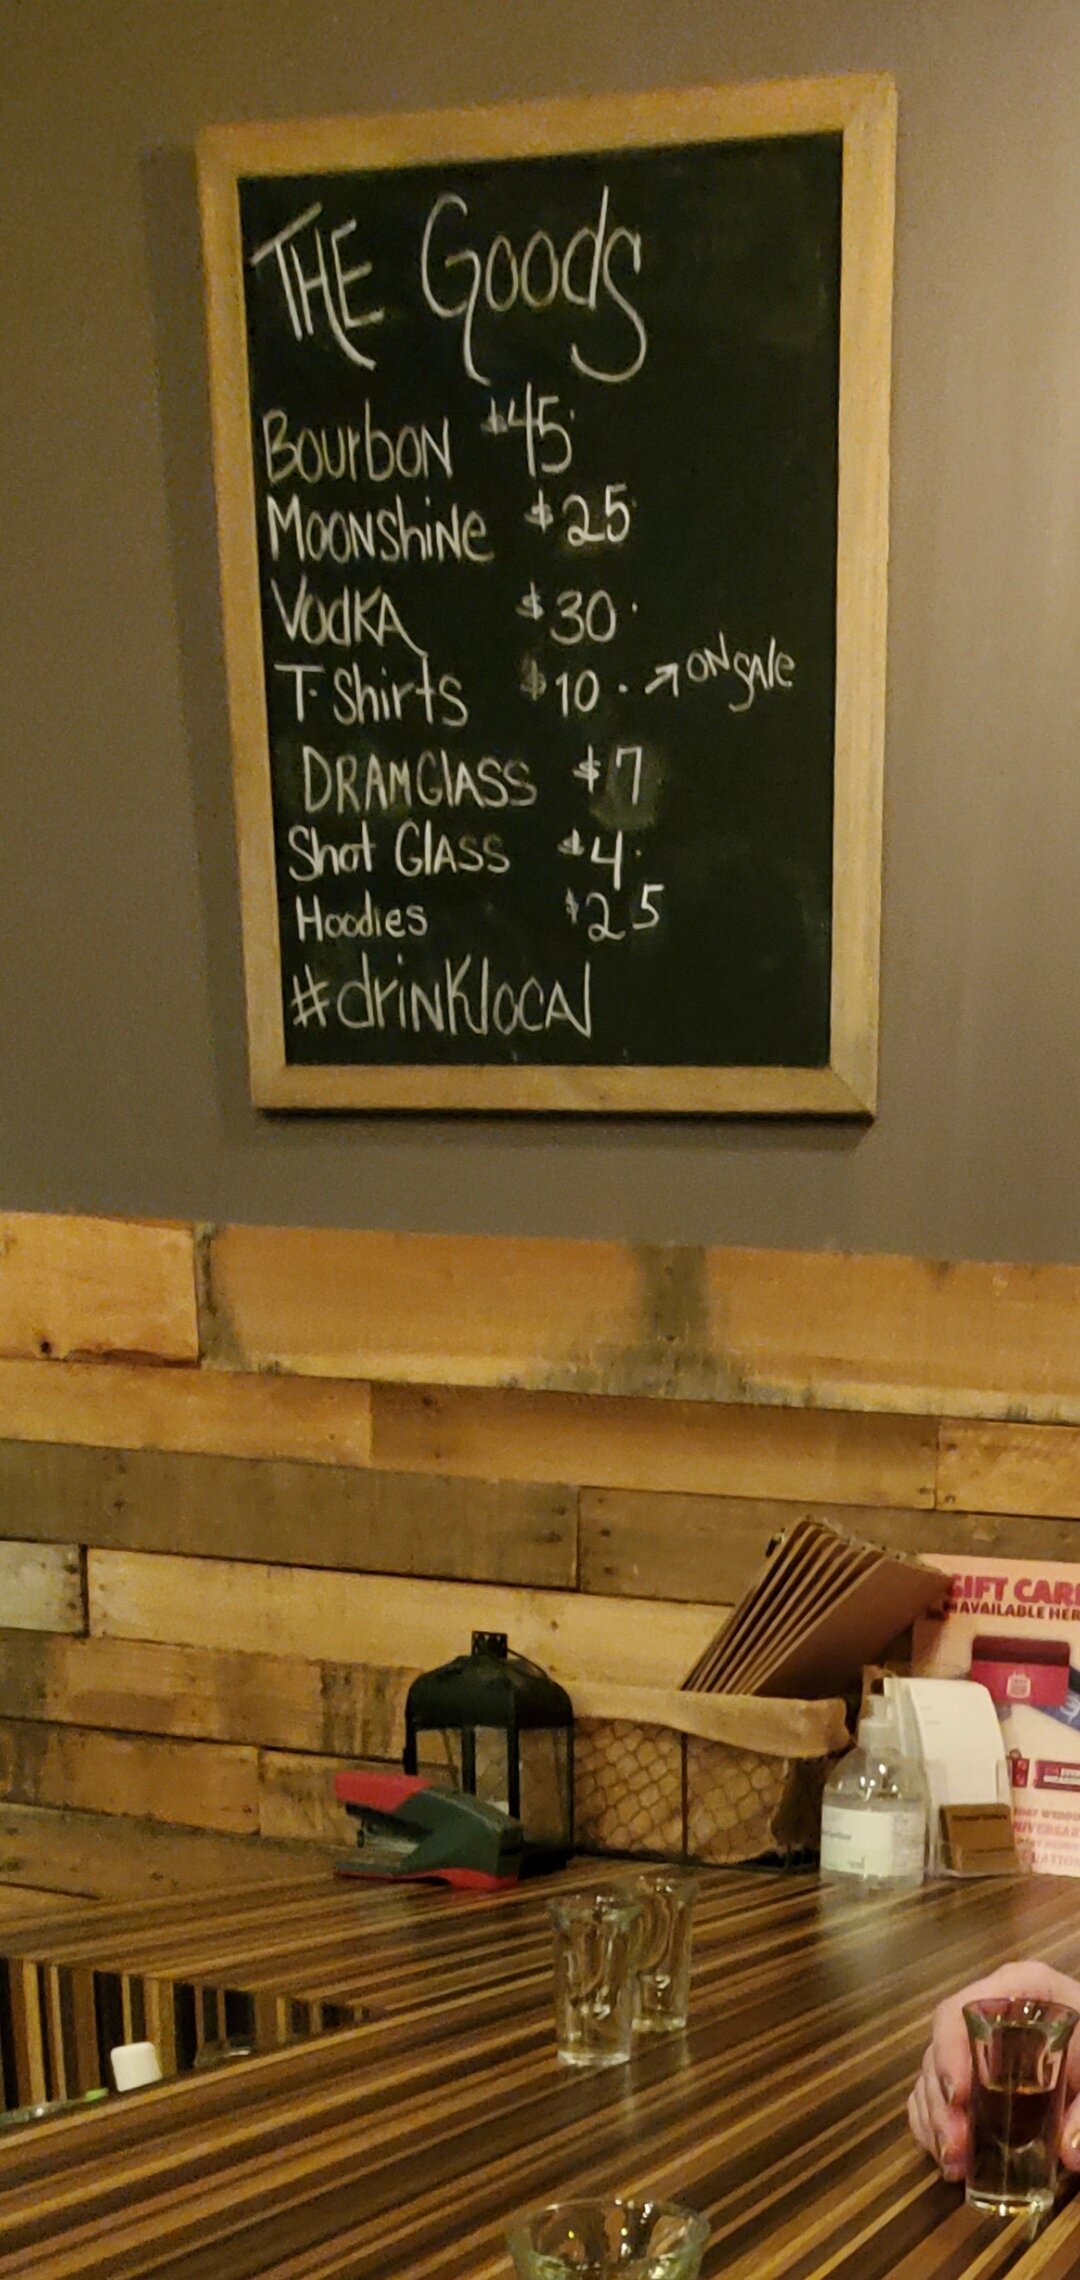 THE Goods
Bourbon $45
Moonshine $25
Vodka $30
T-Shirts $10 ↗ ON Sale
DRAM GlASS $7
Shot GlASS $4
Hoodies $25
#drinklocal
GIFT CAR
AVAILABLE HER